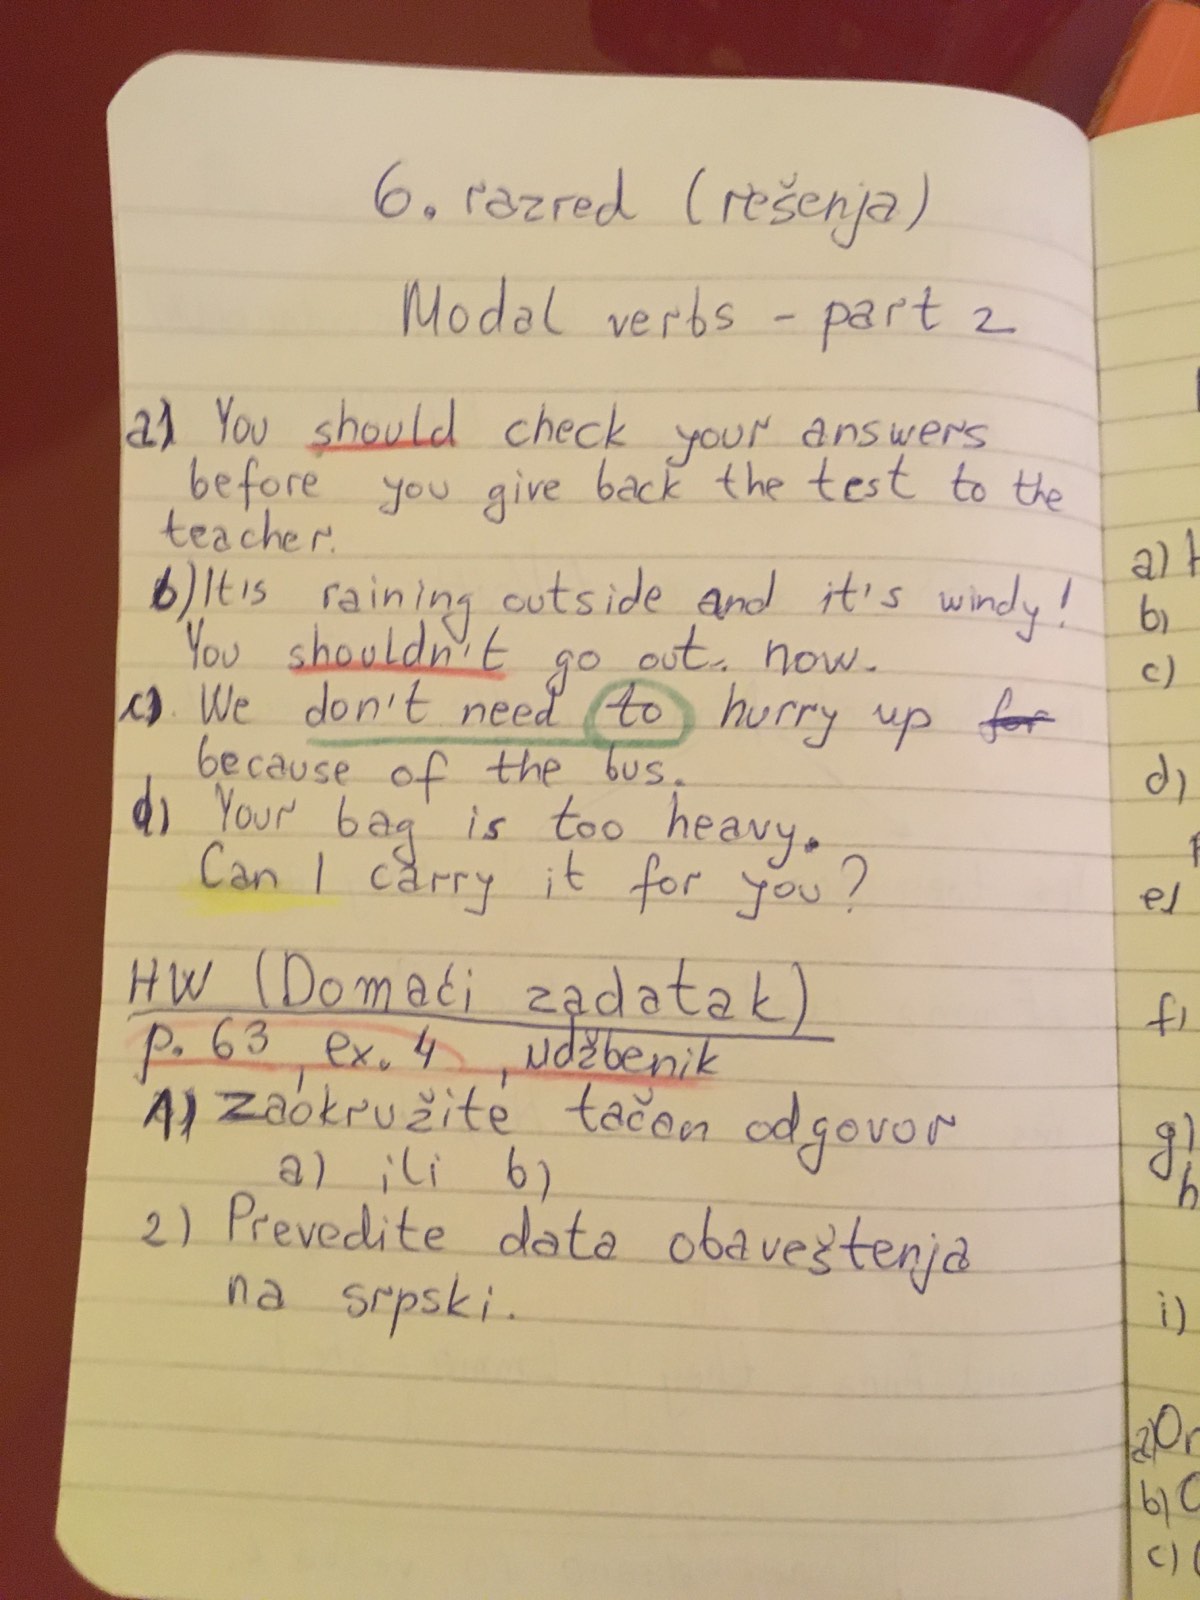 6. razred (rešenja)
Modal verbs - part 2
a) You should check your answers
before you give back the test to the
teacher.
b) It's raining outside and it's windy!
You shouldn't go out. now.
c) We don't need to hurry up for
because of the bus.
d) Your bag is too heavy.
Can I carry it for you?
HW (Domaći zadatak)
p. 63, ex. 4, udžbenik
1) Zaokružite tačan odgovor
a) ili b)
2) Prevedite data obaveštenja
na srpski.
a)
b)
c)
d)
e)
f)
g)
h
i)
a) Or
b) O
c)